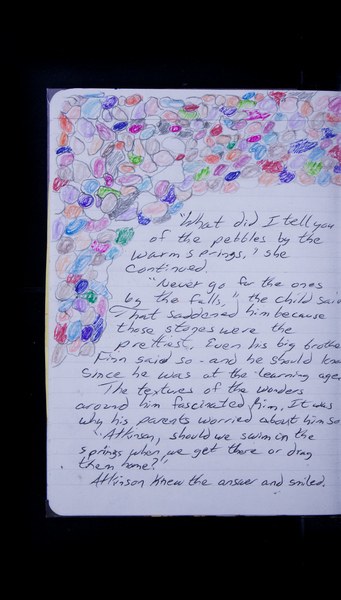 "What did I tell you
of the pebbles by the
warm springs," she
continued.
"Never go for the ones
by the falls," the child said
That saddened him because
those stones were the
prettiest. Even his big brothe
Finn said so - and he should know
Since he was at the learning age.
The textures of the wonders
around him fascinated him. It was
why his parents worried about him so
"Atkinson, should we swim in the
springs when we get there or drag
them home?"
Atkinson knew the answer and smiled.